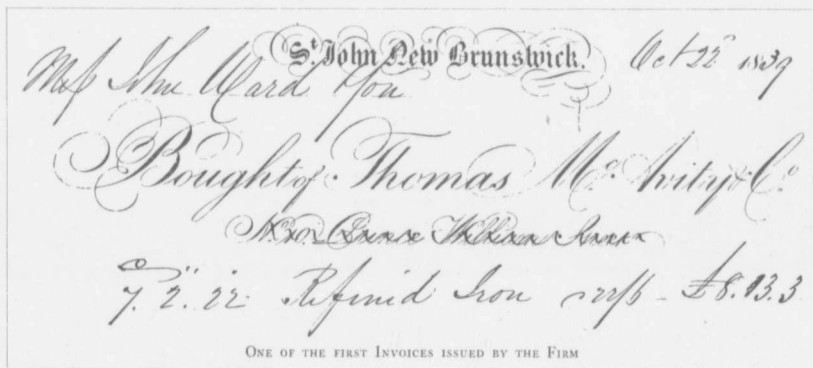 St. John New Brunswick. Oct 22 1839
Mess John Ward & Son
Bought of Thomas McAvity & Co.
No. 10 Prince William Street
7. 2. 22 Refined Iron 22/6 - £8.13.3
ONE OF THE FIRST INVOICES ISSUED BY THE FIRM